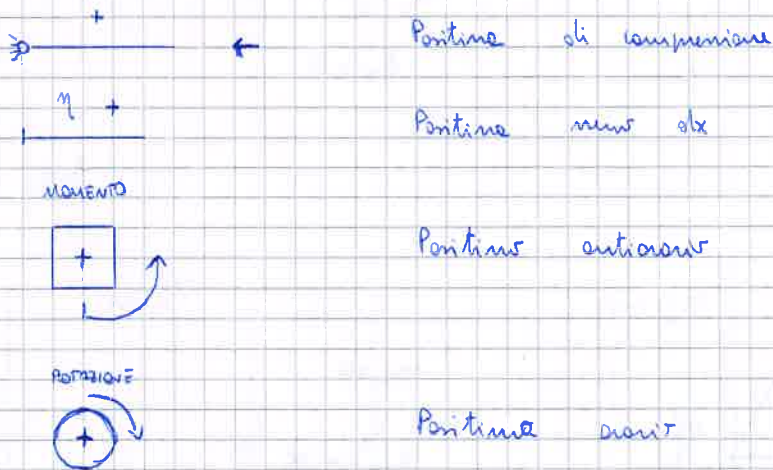 +
Positiva di compressione
η +
Positiva verso dx
MOMENTO
+
Positivo antiorario
ROTAZIONE
+
Positiva orario